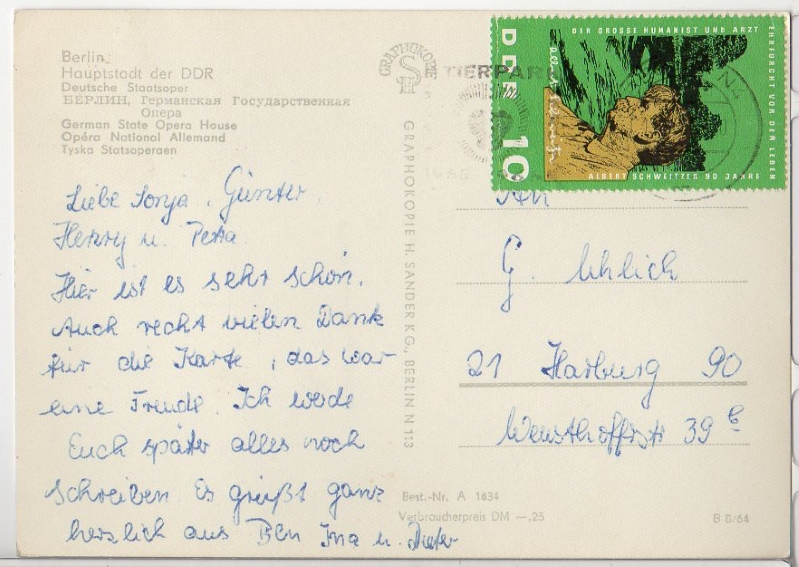 Berlin,
Hauptstadt der DDR
Deutsche Staatsoper
БЕРЛИН, Германская Государственная
Опера
German State Opera House
Opéra National Allemand
Tyska Statsoperaen
Liebe Sonja, Günter,
Henry u. Petra
Hier ist es sehr schön.
Auch recht vielen Dank
für die Karte, das war
eine Freude. Ich werde
Euch später alles noch
schreiben. Es grüßt ganz
herzlich aus Bln Ina u. Dieter
GRAPHOKOPIE
GRAPHOKOPIE H. SANDER KG., BERLIN N 113
TIERPARK
DDR
10
DER GROSSE HUMANIST UND ARZT
EHRFURCHT VOR DEM LEBEN
ALBERT SCHWEITZER 90 JAHRE
N4
An
G. Uhlich
21 Harburg 90
Weusthoffstr 39 c
Best.-Nr. A 1634
Verbraucherpreis DM —,25
B 8/64